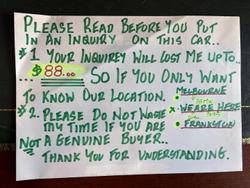 PLEASE READ BEFORE YOU PUT
IN AN INQUIRY ON THIS CAR..
#1 YOUR INQUIREY WILL COST ME UP TO..
$88.00 ... SO IF YOU ONLY WANT
TO KNOW OUR LOCATION. MELBOURNE
WE ARE HERE
#2. PLEASE DO NOT WASTE
MY TIME IF YOU ARE FRANKSTON
NOT A GENUINE BUYER..
THANK YOU FOR UNDERSTANDING.